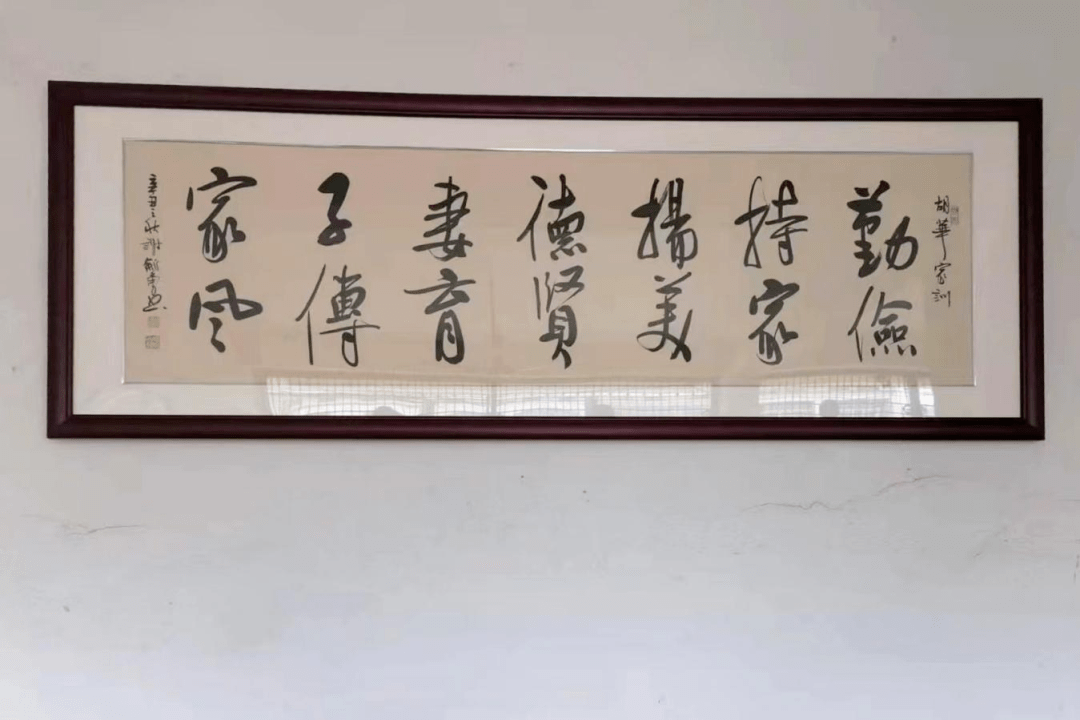 胡華家訓
勤儉
持家
揚美
德賢
妻育
子傳
家風
辛丑之秋謝